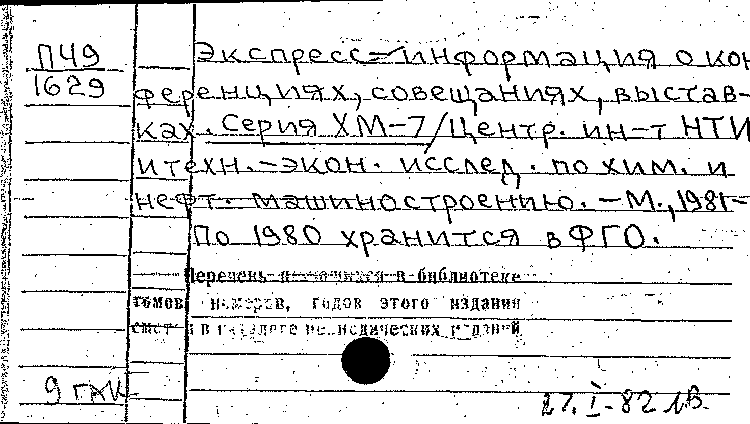 П49
1629
Экспресс-информация о кон
ференциях, совещаниях, выстав-
ках. Серия ХМ-7/Центр. ин-т НТИ
и техн.-экон. исслед. по хим. и
нефт. машиностроению. - М., 1981-
По 1980 хранится в ФГО.
Перечень имеющихся в библиотеке
томов, номеров, годов этого издания
смотри в каталоге периодических изданий
9 ГАК
27.I-82